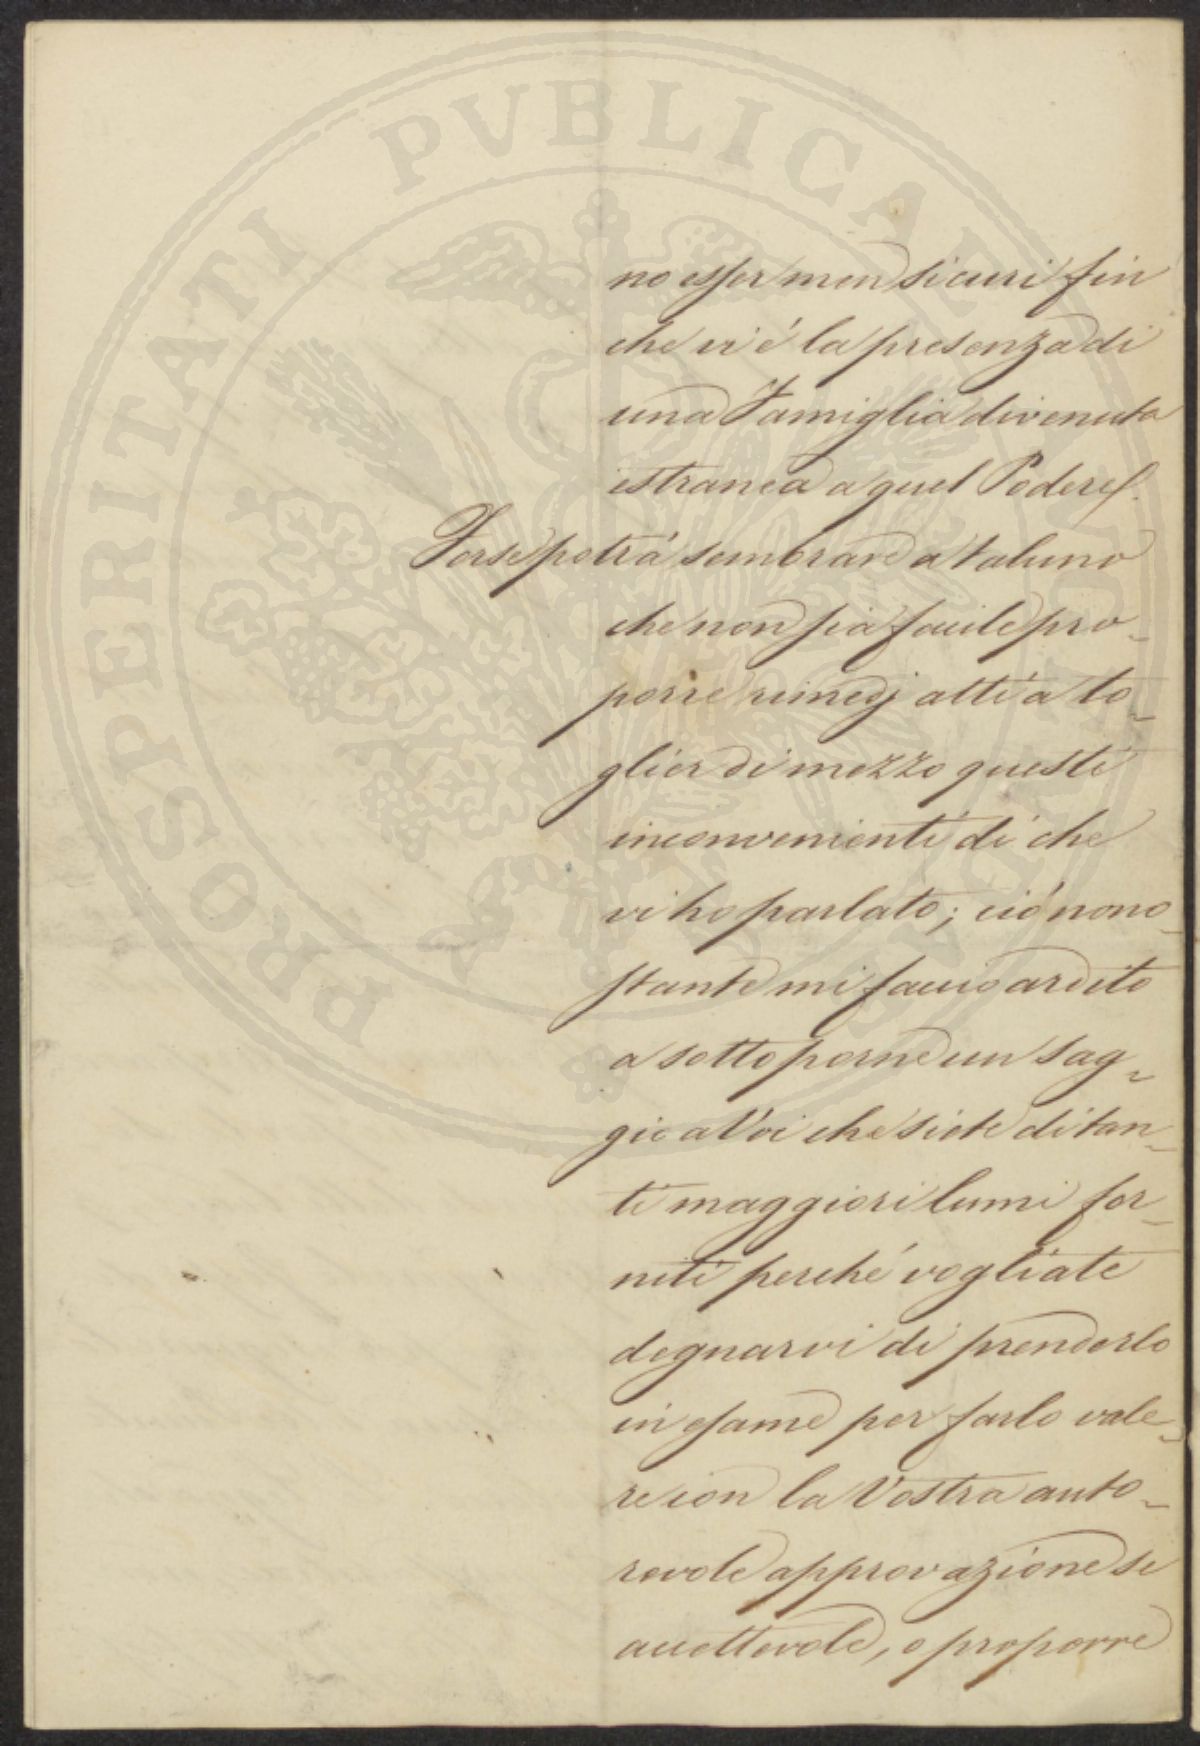 PROSPERITATI PUBLICAE AUGENDAE
no esser men sicuri fin
che vi é la presenza di
una Famiglia divenuta
estranea a quel Podere.
Forse potrá sembrare a taluno
che non sia facile pro-
porre rimedj atti a to-
glier di mezzo questi
inconvenienti di che
vi ho parlato; ció nono-
stante mi faccio ardito
a sottoporne un sag-
gio a Voi che siete di tan-
ti maggiori lumi for-
niti perché vogliate
degnarvi di prenderlo
in esame per farlo vale-
re con la Vostra auto-
revole approvazione se
accettevole, o proporre